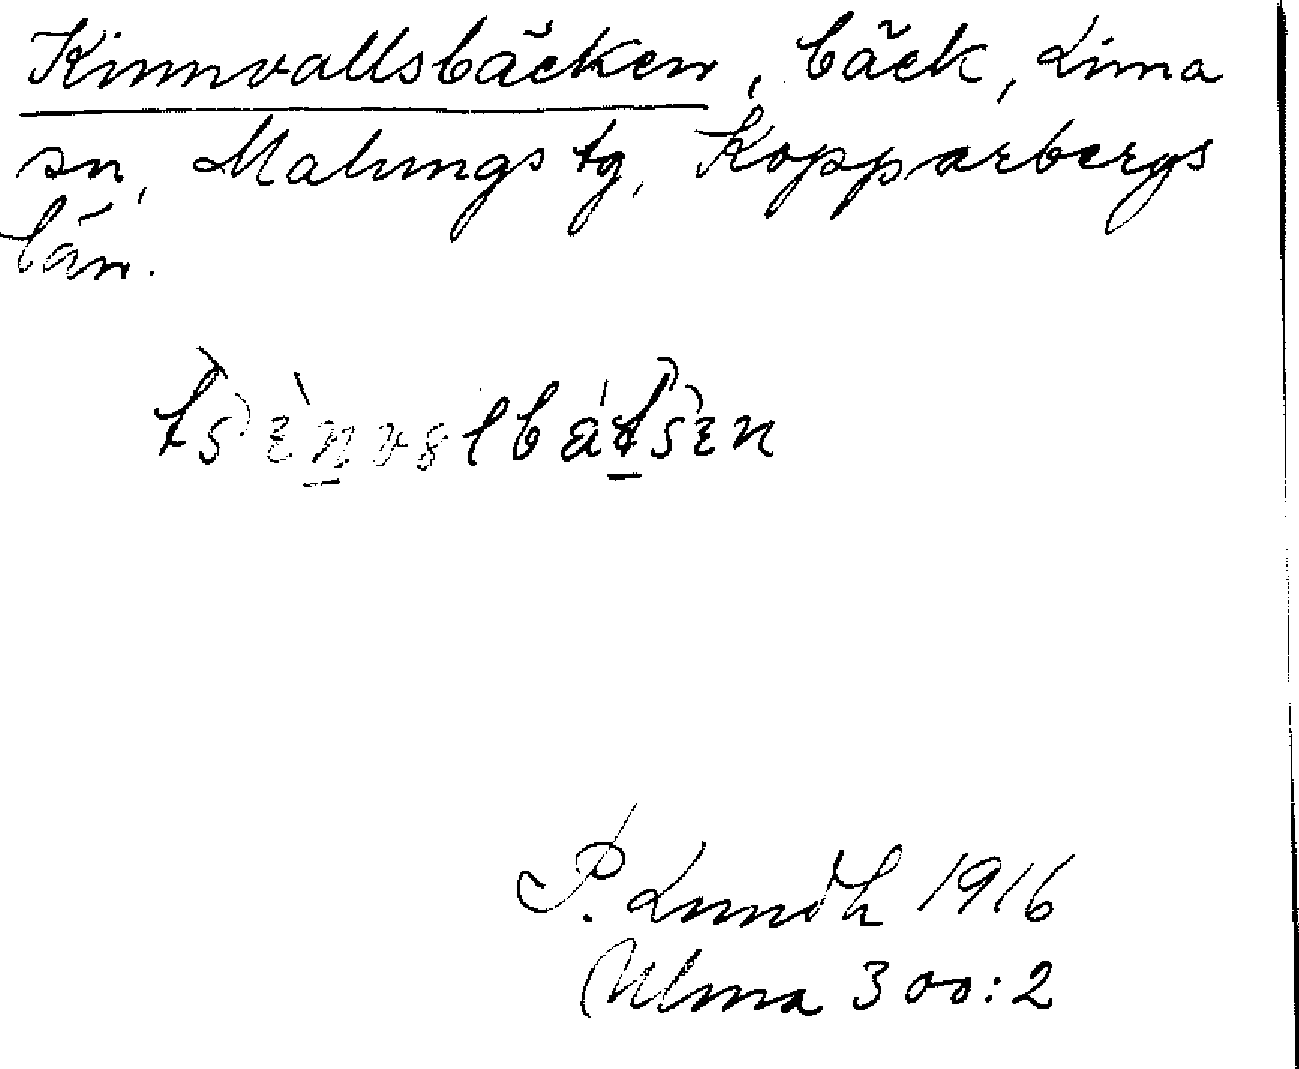 Kinnvallsbäcken, bäck, Lima
sn, Malungs tg, Kopparbergs
län.
P. Lundh 1916
Ulma 300:2